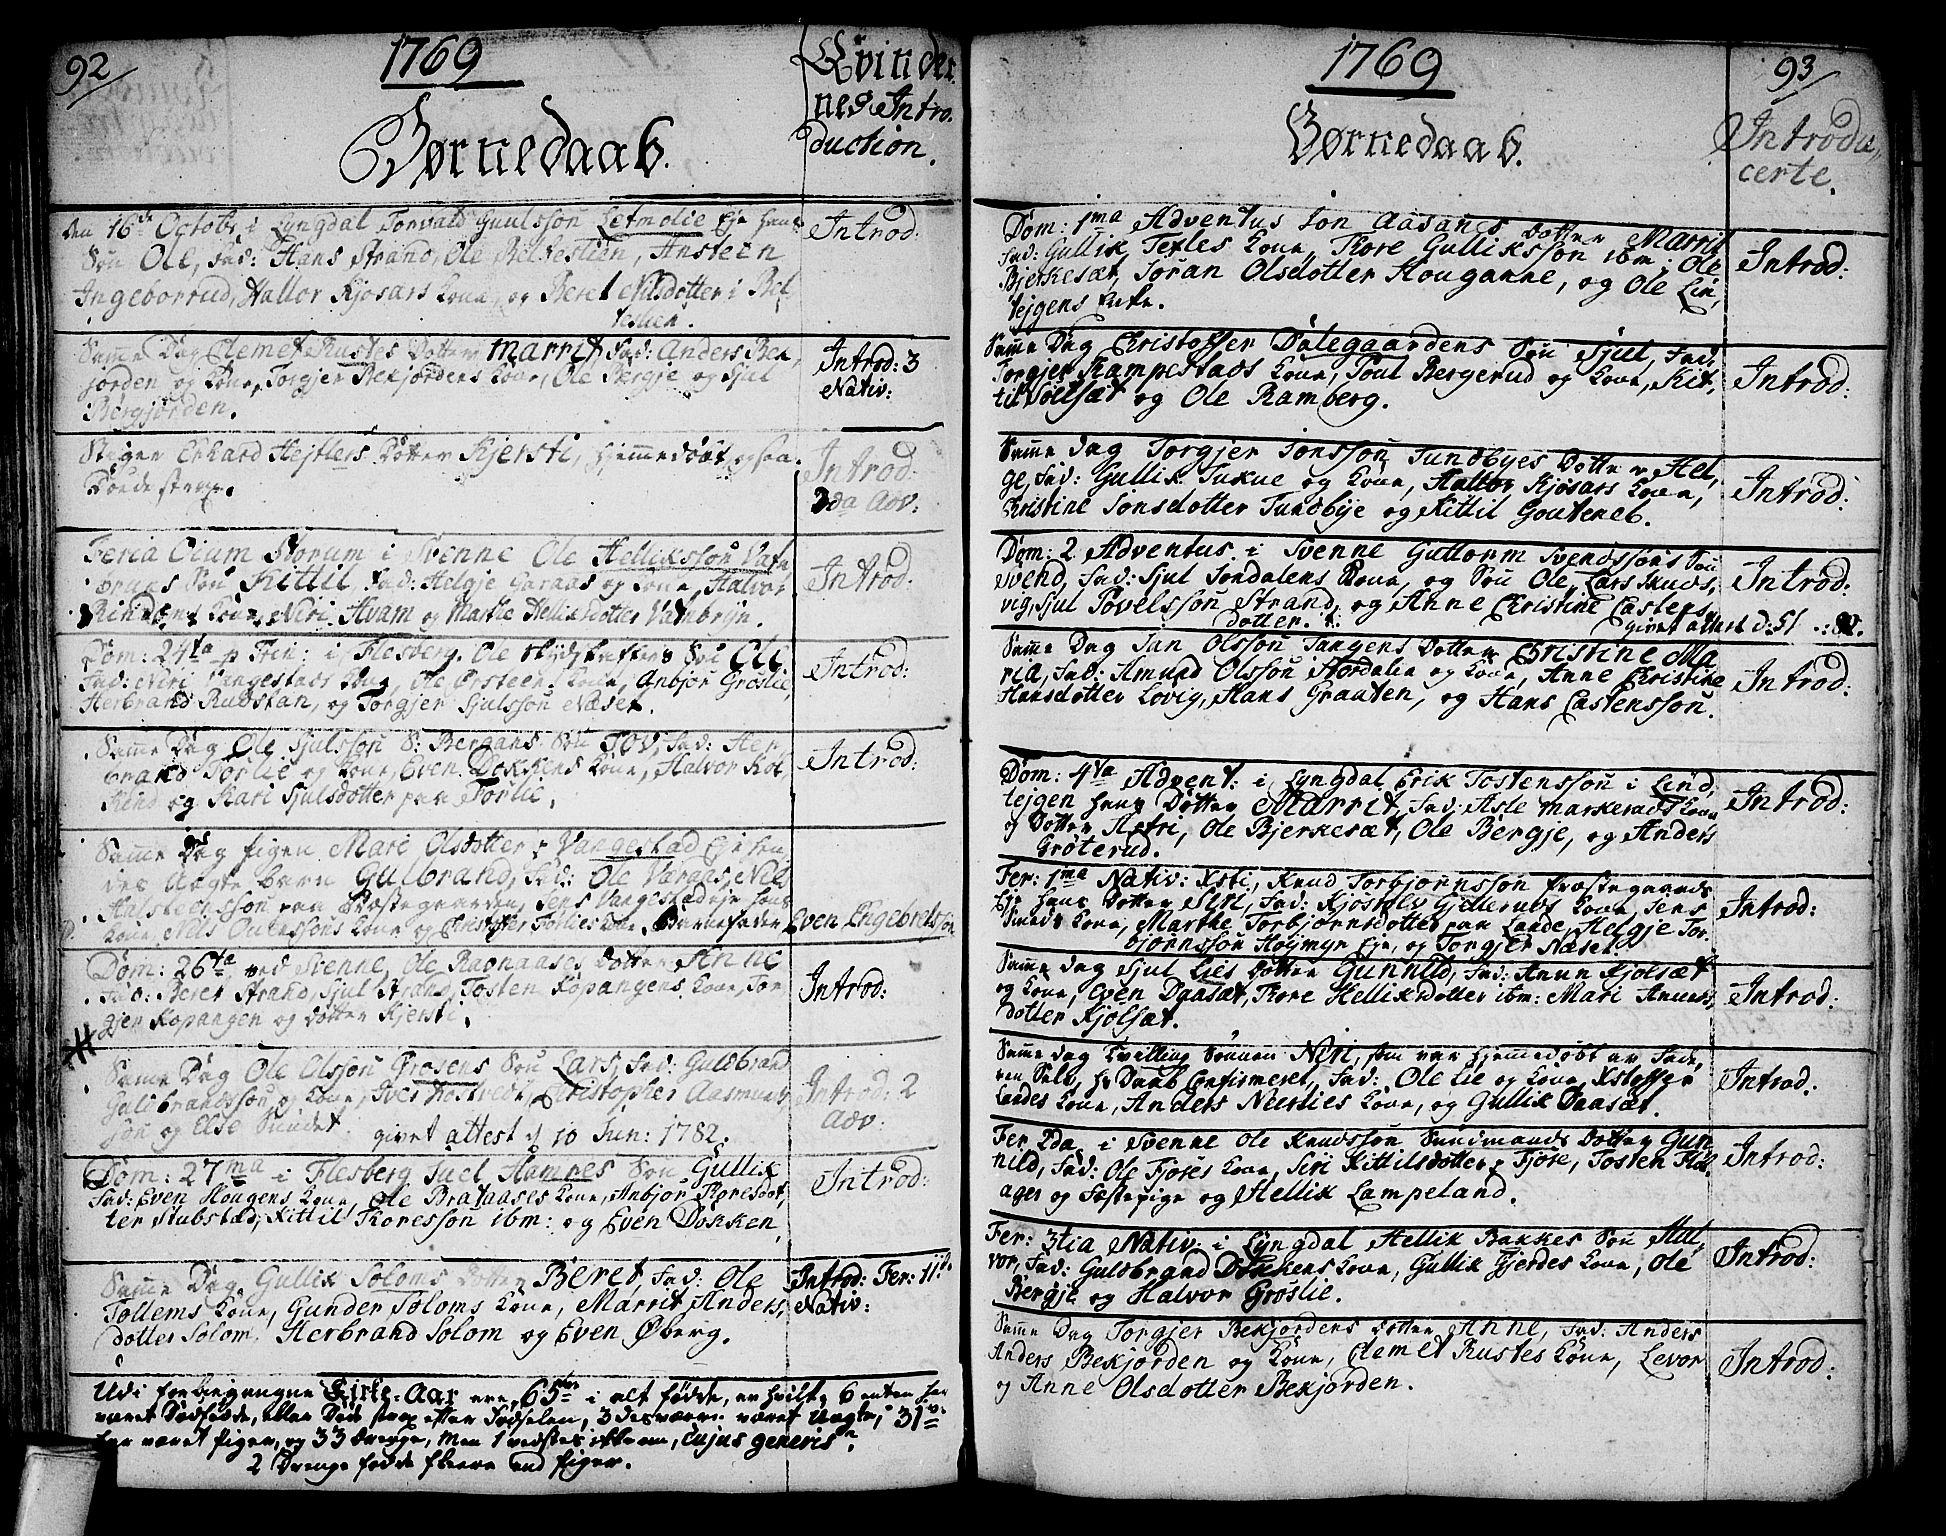 92
1769
Børnedaab.
Qvinder
nes Intro
duction.
den 16de Octobr i Lyngdal Torvald Guulssøn Letmolie Eje hans
Søn Ole, Fad: Hans Strand, Ole Belsestien, Ansteen
Ingeborrud, Hallor Kjøsars Kone, og Beret Nilsdotter i Bel,
testien.
Introd:
Samme Dag Clemet Rustes Dotter Marrit, Fad: Anders Bek,
jorden og Kone, Torgjer Bekjordens Kone, Ole Bergje og Sjul
Bergjorden.
Introd: 3
Nativ:
Stiger Erhard Hejtlers Dotter Kjersti, Hjemmedøbt og saa
døde strax.
Introd:
2da Adv:
Feria Oium Storum i Svenne Ole Helliksson Vatn
bruns Søn Kittil, Fad: Helgje Garaas og Kone, Halvor
Rindens Kone, Neri Hvam og Marthe Helliksdotter Vatnbryn.
Introd:
Dom: 24ta p Trin: i Flesberg, Ole Skydskafters Søn Ole,
Fad: Neri Vangestads Kone, Ole Ørsteens Kone, Anbjør Grøslie,
Herbrand Rudstan, og Torgjer Sjulssøn Næset.
Introd:
Samme Dag Ole Sjulssøn S: Bergans Søn Tov, Fad: Her
brand Torlie og Kone, Even Dokkens Kone, Halvor Kol,
Kind og Kari Sjulsdotter paa Torlie.
Introd:
Samme Dag Pigen Mari Olsdotter p Vangestad Eje hen
des Uægte barn Gulbrand, Fad: Ole Varaas, Nils
Halstechssøn paa Præstegaarden, Jens Vangestadeje hans
Kone, Nils Kone og Christopher Torlies Kone. Barnefader Even Engebretsøn
Dom: 26ta, ved Svenne, Ole Ragnaases Dotter Anne
Fad: Beret Strand, Sjul Strand, Tosten Kopangens Kone, Tor
gjer Kopangen og Dotter Kjersti.
Introd:
Samme Dag Ole Olssøn Grosens Søn Lars, Fad: Guldbrand
Guldbrandssøn og Kone, Christopher Aasmunds,
søn og Else Sundet. givet attest d 10 Jun: 1782.
Introd: 2
Adv:
Dom: 27ma i Flesberg Juel Hamres Søn Gullik
Fad: Even Hougens Kone, Ole Brataases Kone, Anbjør Thoresdot,
ter Stubstad, Kittil Thoressøn ibm: og Even Dokken,
Introd:
Samme Dag Gullik Soloms Dotter Beret, Fad: Ole
Tollems Kone, Gunder Soloms Kone, Marrit Anders,
dotter Solom, Herbrand Solom og Even Øberg.
Introd: Fer: 11da
Nativ:
Udi forbigangne Kirke-Aar ere 65ve i alt fødde, av hvilke 6 enten har
været Dødfødde, eller Døde strax efter Fødselen, 3 desværre været Uægte, 31v.
har været Piger, og 33 Drenge, men 1 vedstes ikke cujus generis,
2 Drenge fødde fleere end Piger.
1769
93
Børnedaab.
Introdu,,
certe.
Dom: 1ma Adventus Jon Aasans Dotter Marrit
Fad: Gullik Texles Kone, Thore Gullikssøn ibm: Ole
Bjerkesæt, Jøran Olsdotter Houganne, og Ole Lin,
tejgens Enke.
Introd:
Samme Dag Christoffer Dalegaardens Søn Sjul, Fad:
Torgjer Rampestads Kone, Poul Bergerud og Kone, Kit,
til Solsæt og Ole Ramberg.
Introd:
Samme Dag Torgjer Jonssøn Sundbyes Dotter Hel,
ge, Fad: Gullik Tukue og Kone, Hallor Kjøsars Kone,
Christine Jonsdotter Sundbye og Kittil Gouteneb.
Introd:
Dom: 2 Adventus i Svenne Guttorm Svendssøns Søn
Svend, Fad: Sjul Jondalens Kone, og Søn Ole, Lars Skuds,
vig, Sjul Povelssøn Strand, og Anne Christine Castens
dotter. givet attest d:
Introd:
Samme Dag Jan Olssøn Tangens Dotter Christine Ma
ria, Fad: Amund Olssøn Hordalie og Kone, Anne Christine
Hansdotter Lovig, Hans Graaten, og Hans Castenssøn.
Introd:
Dom: 4ta Advent: i Lyngdal Erik Tostenssøn i Lind,
tejgen hans Dotter Marrit, Fad: Asle Markeruds Kone
og Dotter Astri, Ole Bjerkesæt, Ole Bergje, og Anders
Grøterud.
Introd:
Fer: 1ma Nativ: Xsti, Knud Torbjørnssøn Præstegaards
Eje hans Dotter Siri, Fad: Kjøstelv Gjelleruds Kone, Jens
Smeds Kone, Marthe Torbjørnsdotter paa Lande, Helgje Tor,
bjørnssøn Høymyr Eje, og Torgjer Næset.
Introd:
Samme Dag Sjul Lies Dotter Gunnild, Fad: Anun Kjolsæt
og Kone, Even Daasæt, Thore Helliksdotter ibm: Mari Anuns,
dotter Kjolsæt.
Introd:
Samme Dag Tvilling Sønnen Neri, som var Hjemmedøbt av Fade,
ren Selv, fik Daab Confirmeret, Fad: Ole Lie og Kone, Xstoffer
Landes Kone, Anders Neersties Kone, og Gullik Daasæt.
Introd:
Fer 2da i Svenne Ole Knudssøn Sandmands Dotter Gun
nild, Fad: Ole Fjøses Kone, Siri Kittilsdotter p Fjøse, Tosten Hal
ager og Fæstepige og Hellik Lampeland.
Introd:
Fer: 3tia Nativ: i Lyngdal Hellik Bakkes Søn Hal,
vor, Fad: Guldbrand Dokkens Kone, Gullik Fjerdes Kone, Ole
Bergje og Halvor Grøslie.
Introd:
Samme Dag Torgjer Bekjordens Dotter Anne, Fad: Anders
Anders Bekjorden og Kone, Clemet Rustes Kone, Levor
og Anne Olsdotter Bekjorden.
Introd: